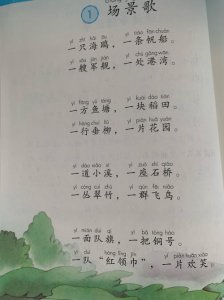 ① 场景歌
yì zhī hǎi ōu yì tiáo fān chuán
一只海鸥，一条帆船。
yì sōu jūn jiàn yí chù gǎng wān
一艘军舰，一处港湾。
yì fāng yú táng yí kuài dào tián
一方鱼塘，一块稻田。
yì háng chuí liǔ yí piàn huā yuán
一行垂柳，一片花园。
yí dào xiǎo xī yí zuò shí qiáo
一道小溪，一座石桥。
yì cóng cuì zhú yì qún fēi niǎo
一丛翠竹，一群飞鸟。
yí miàn duì qí yì bǎ tóng hào
一面队旗，一把铜号。
yí duì hóng lǐng jīn yí piàn huān xiào
一队“红领巾”，一片欢笑